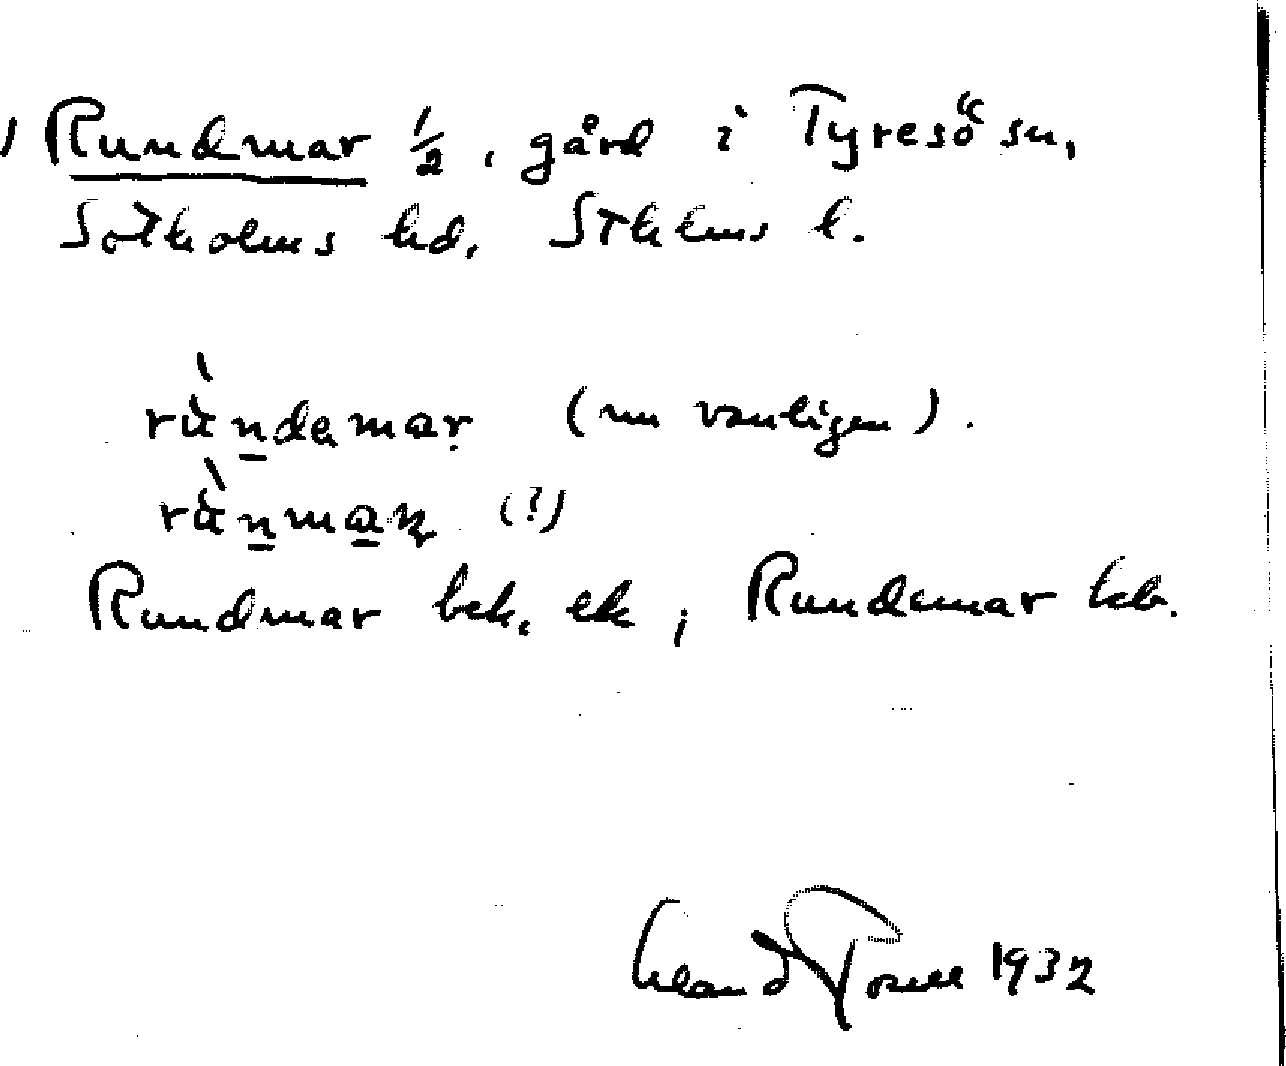 Rundmar ½, gård i Tyresö sn,
Sotholms hd, Sthlms l.
rùndemar (nu vanligen).
rùnmar (?)
Rundmar bek, ek; Rundemar kb.
Erland Rosell 1932